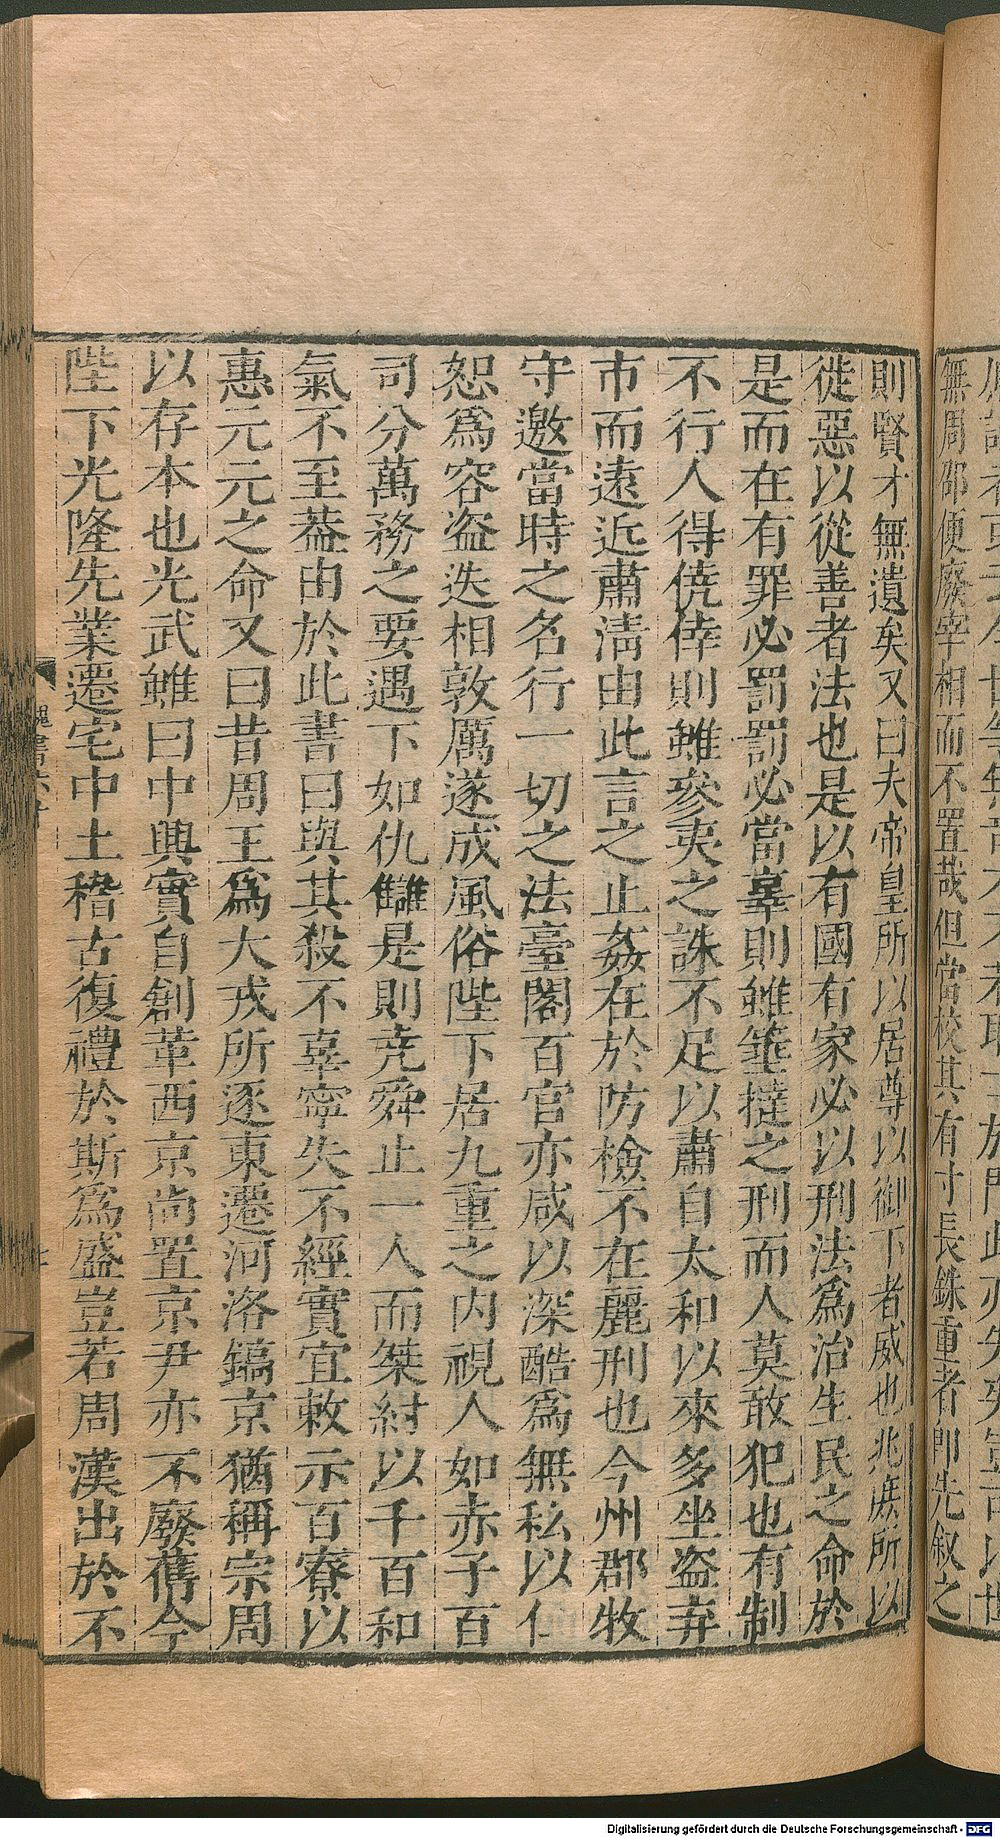 無周邵便廢宰相而不置哉但當校其有寸長銖重者卽先敘之
則賢才無遺矣又曰夫帝皇所以居尊以御下者威也兆庶所以
徙惡以從善者法也是以有國有家必以刑法爲治生民之命於
是而在有罪必罰罰必當辜則雖箠撻之刑而人莫敢犯也有制
不行人得僥倖則雖參夷之誅不足以肅自太和以來多坐盜弃
市而遠近肅淸由此言之止姦在於防檢不在麗刑也今州郡牧
守邀當時之名行一切之法臺閣百官亦咸以深酷爲無私以仁
恕爲容盜迭相敦厲遂成風俗陛下居九重之內視人如赤子百
司分萬務之要遇下如仇讎是則堯舜止一人而桀紂以千百和
氣不至葢由於此書曰與其殺不辜寧失不經實宜敕示百寮以
惠元元之命又曰昔周王爲犬戎所逐東遷河洛鎬京猶稱宗周
以存本也光武雖曰中興實自創革西京尚置京尹亦不廢舊今
陛下光隆先業遷宅中土稽古復禮於斯爲盛豈若周漢出於不
魏書六十
Digitalisierung gefördert durch die Deutsche Forschungsgemeinschaft - DFG